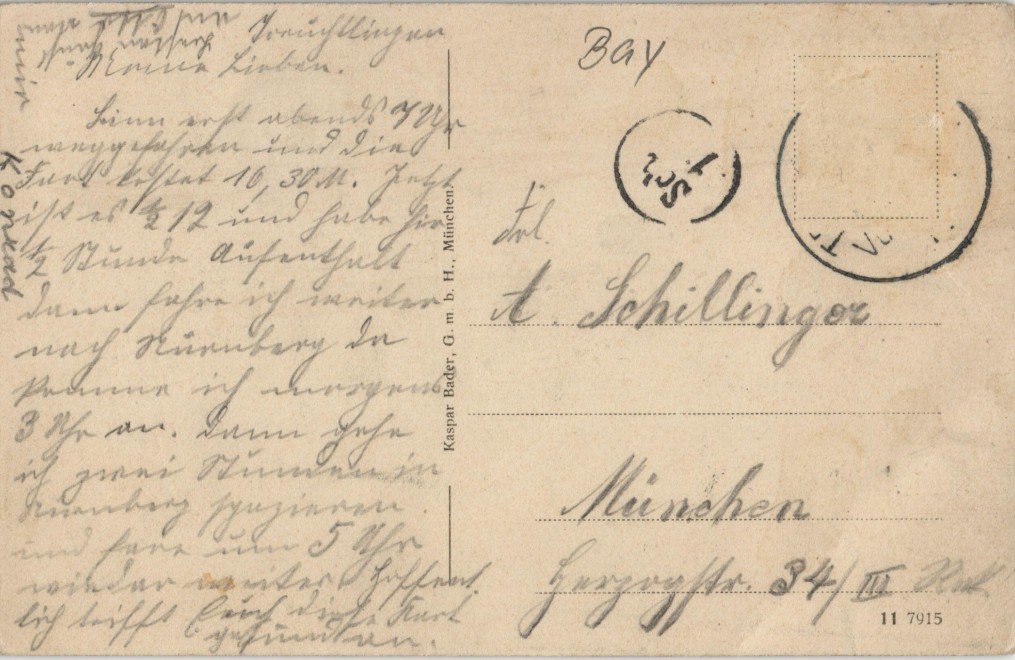 Treuchtlingen
Meine Lieben.
Binn erst abends 7 Uhr
weggefahren und die
Fart kostet 16,30 M. Jetzt
ist es ½ 12 und habe hir
½ Stunde Aufenthalt
dann fahre ich weiter
nach Nürnberg da
komme ich morgens
3 Uhr an. Dann gehe
ich zwei Stunden in
Nürnberg spazieren
und fare um 5 Uhr
wieder weiter. Hoffent
lich trifft Euch diese Kart
gesund an.
mir
Konrad
Kaspar Bader, G. m. b. H., München.
Bay
Frl.
A. Schillinger
München
Herzogstr. 34/III
11 7915